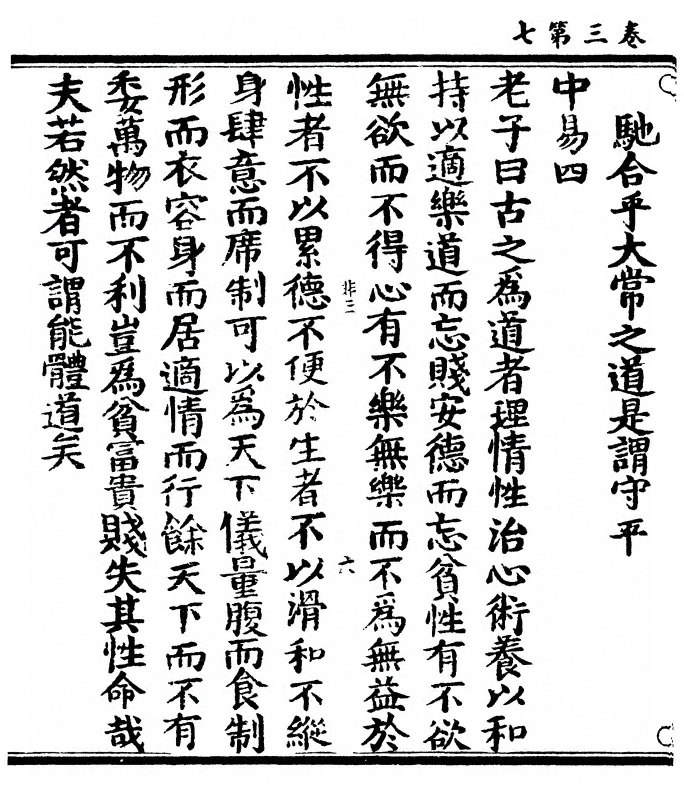 七第三卷
馳合乎大常之道是謂守平
中易四
老子曰古之爲道者理情性治心術養以和
持以適樂道而忘賤安德而忘貧性有不欲
無欲而不得心有不樂無樂而不爲無益於
性者不以累德不便於生者不以滑和不縱
非三
六
身肆意而席制可以爲天下儀量腹而食制
形而衣容身而居適情而行餘天下而不有
委萬物而不利豈爲貧富貴賤失其性命哉
夫若然者可謂能體道矣